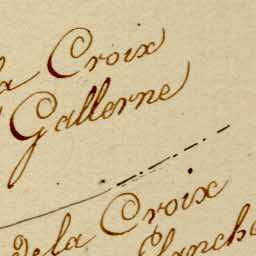 la Croix
Gallerne
de la Croix
Planch